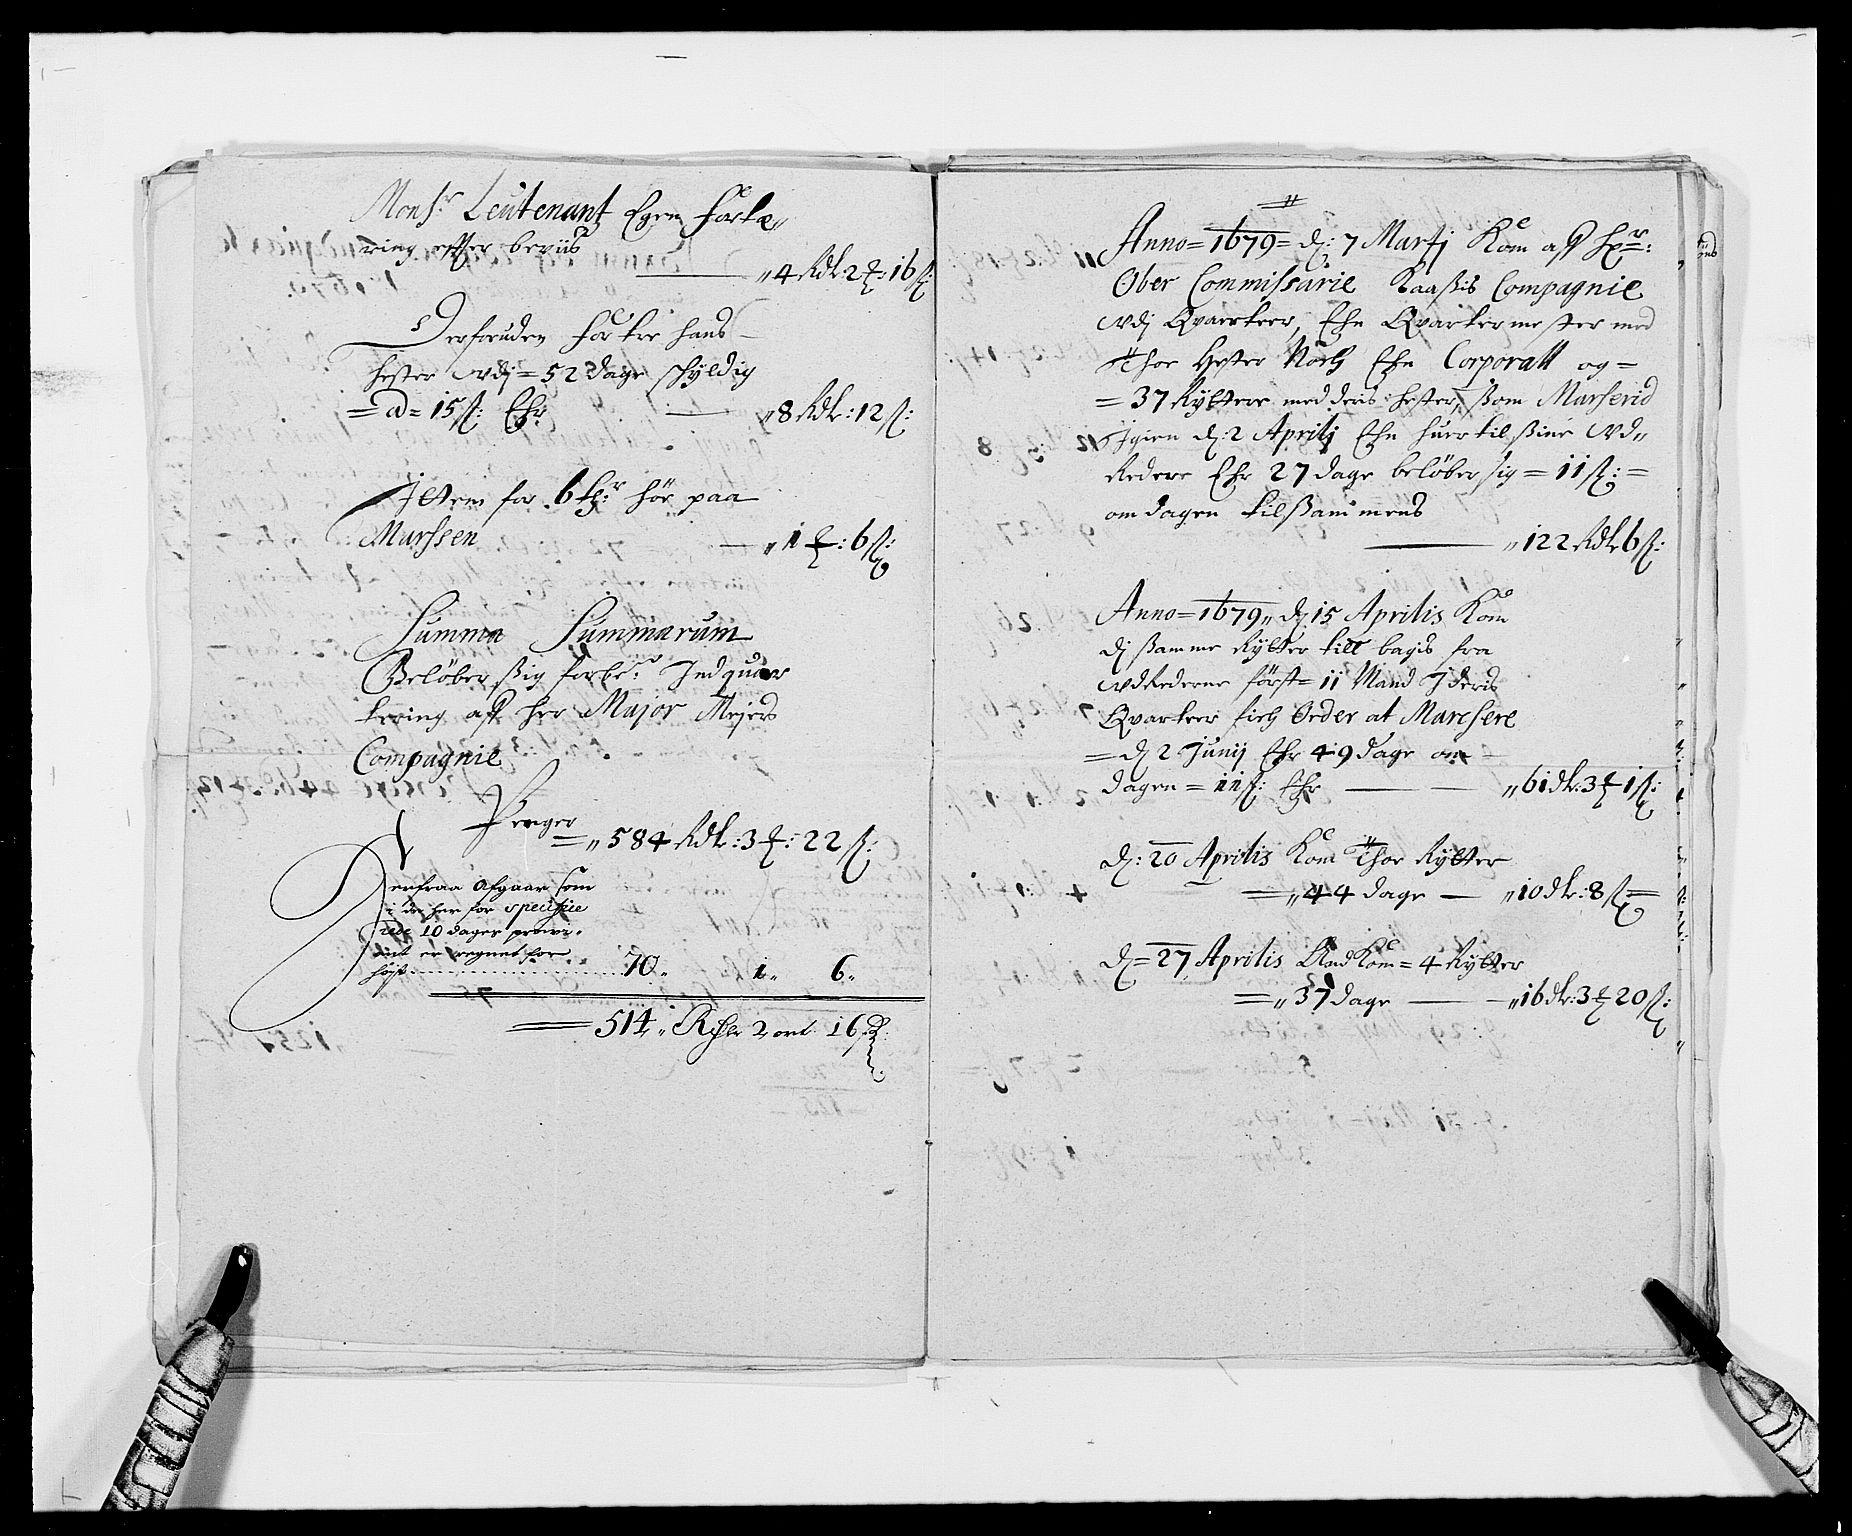 Monsr Leutenant Egen fortæ„
ring effter beviis
„4 Rdlr 2 ℔: 16 ß:
Derforuden foster hans
hester vdj = 52 dage schyldig
= a = 15 ß: Ehr „8 Rdlr: 12 ß:
Jttem for 6 hör paa
Marssen „1 ℔: 6 ß:
Summa Summarum
Belöber ßig forbe: Indquar
tering aff her Major Mejers
Compagnie
Penger
= „584 Rdlr: 3 ℔: 22 ß:
Derfraa Afgaar som
i de her for specifice
rede 10 dages provi„
ant er regnet for
höyt 70„ 1„ 6„
514„ Rixdlr 2 ort 16 ß
Anno = 1679 = d: 7 Martj Kom aff Hr:
Ober Commissarie Kaaßis Compagnie
vdj Qvarteer, Ehn Qvartermester med
Thoe Hester Noch Ehn Corporall og =
= 37 Rÿttere med deris hester, ßom Marserid
Igien d: 2 Aprilj Ehn huer til ßine Vd„
Redere Ehr 27 dage belöber sig = 11 ß: =
om dagen tilßammens
„122 Rdlr 6 ß:
Anno = 1679„ d: 15 Aprilis Kom
dj ßamme Rÿtter till bagis fra
vdRederne först = 11 Mand I deris
Qvarteer fich Order at Marchere
= d 2 Junij Ehr 49 dage om
dagen = 11 ß: Ehr „61 dlr: 3 ℔ 1 ß:
d: 20 Aprilis Kom Thoe Rÿtter
= „44 dage „10 dlr: 8 ß =
d = 27 Aprilis And Kom = 4 Rÿtter
= „37 dage „16 dlr: 3 ℔ 20 ß: